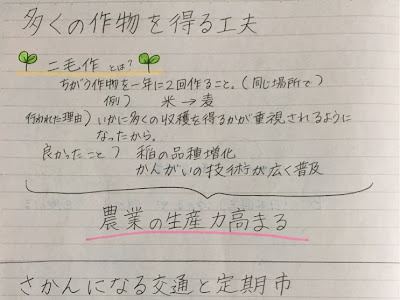 多くの作物を得る工夫
二毛作とは?
ちがう作物を一年に2回作ること。(同じ場所で)
例) 米→麦
行われた理由) いかに多くの収穫を得るかが重視されるように
なったから。
良かったこと) 稲の品種増化
かんがいの技術が広く普及
農業の生産力高まる
さかんになる交通と定期市